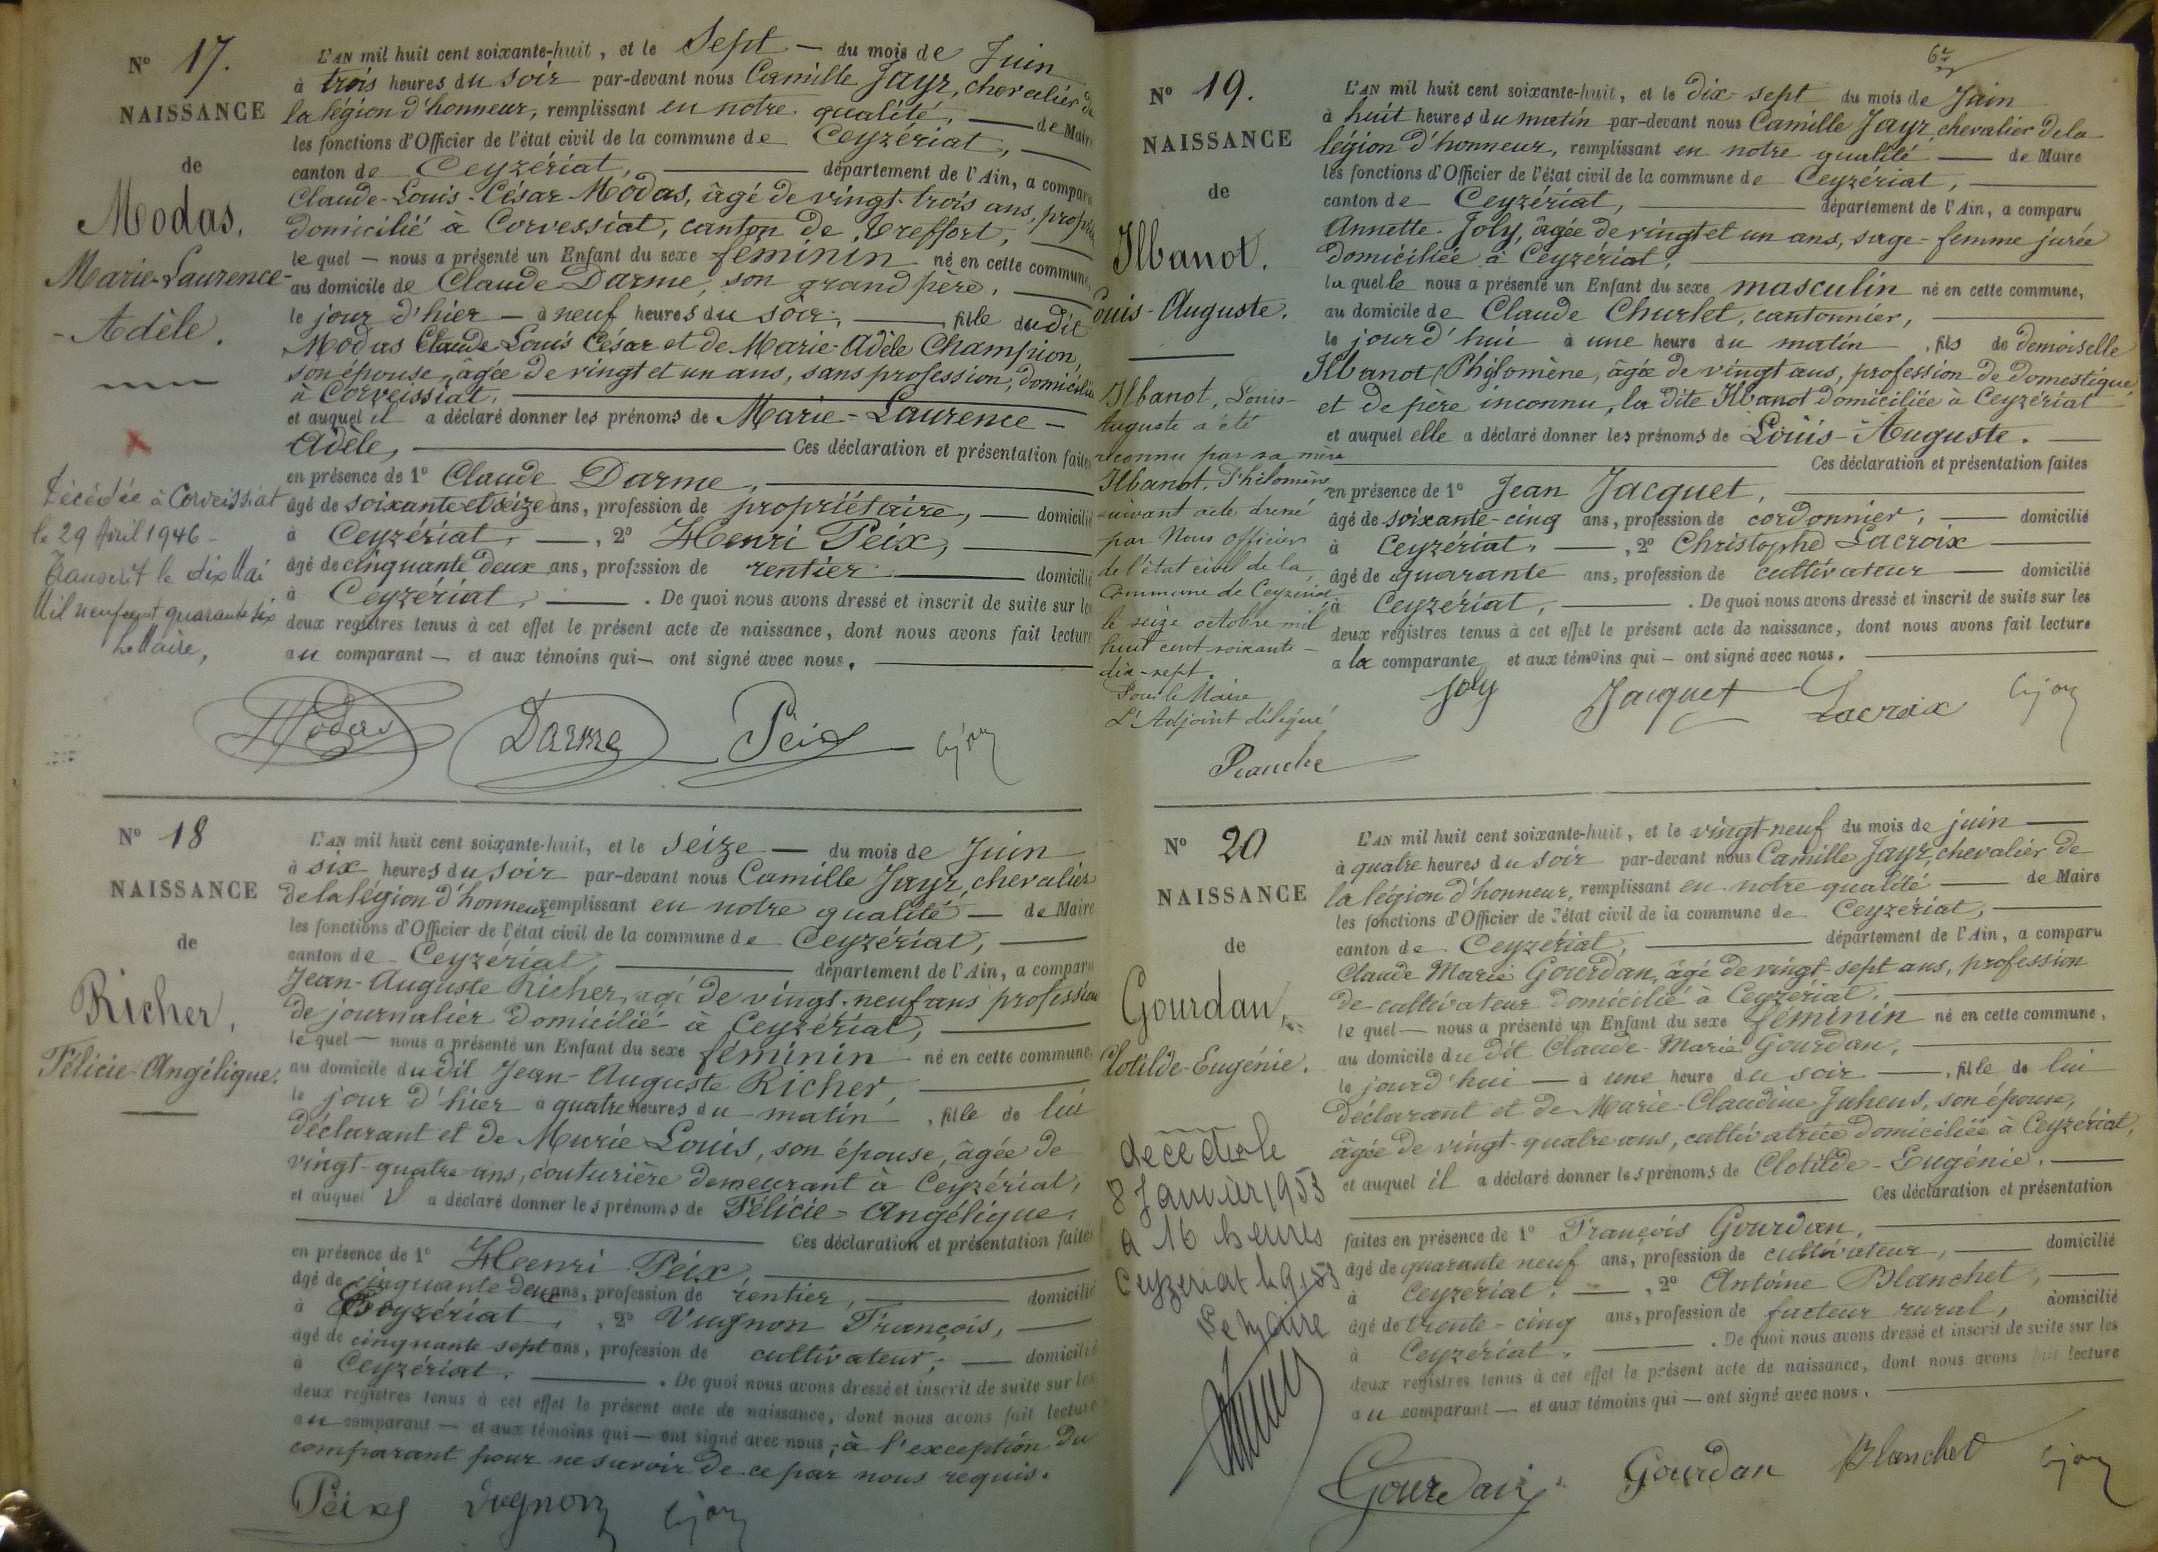 N° 17.
NAISSANCE
de
Modas,
Marie-Laurence-
-Adèle.
Décédée à Corveissiat
le 29 Avril 1946 -
Transcrit le dix Mai
Mil neuf cent quarante six
Le Maire,
L'AN mil huit cent soixante-huit, et le Sept — du mois de Juin
à trois heures du soir par-devant nous Camille Jayr, chevalier de
la légion d'honneur, remplissant en notre qualité, — de Maire
les fonctions d'Officier de l'état civil de la commune de Ceyzériat, —
canton de Ceyzériat, — département de l'Ain, a comparu
Claude-Louis-César Modas, âgé de vingt-trois ans, propri
domicilié à Corvessiat, canton de Treffort, —
le quel — nous a présenté un Enfant du sexe féminin né en cette commune,
au domicile de Claude Darme, son grand père, —
le jour d'hier — à neuf heures du soir, — fille du dit
Modas Claude Louis César et de Marie-Adèle Champion,
son épouse, âgée de vingt et un ans, sans profession, domiciliée
à Corveissiat, —
et auquel il a déclaré donner les prénoms de Marie-Laurence-
Adèle, — Ces déclaration et présentation faites
en présence de 1° Claude Darme, —
âgé de soixante et seize ans, profession de propriétaire, — domicilié
à Ceyzériat, — , 2° Henri Peix, —
âgé de cinquante deux ans, profession de rentier — domicilié
à Ceyzériat, — . De quoi nous avons dressé et inscrit de suite sur les
deux registres tenus à cet effet le présent acte de naissance, dont nous avons fait lecture
au comparant — et aux témoins qui — ont signé avec nous. —
Modas Darme Peix
N° 18
NAISSANCE
de
Richer,
Félicie-Angélique.
L'AN mil huit cent soixante-huit, et le seize — du mois de Juin
à six heures du soir par-devant nous Camille Jayr, chevalier
de la légion d'honneur remplissant en notre qualité — de Maire
les fonctions d'Officier de l'état civil de la commune de Ceyzériat, —
canton de Ceyzériat, — département de l'Ain, a comparu
Jean-Auguste Richer, agé de vingt-neuf ans profession
de journalier domicilié à Ceyzériat, —
le quel — nous a présenté un Enfant du sexe féminin né en cette commune,
au domicile du dit Jean-Auguste Richer, —
le jour d'hier a quatre heures du matin , fille de lui
déclarant et de Marie Louis, son épouse, âgée de
vingt-quatre ans, couturière demeurant à Ceyzériat,
et auquel il a déclaré donner les prénoms de Félicie-Angélique.
— Ces déclaration et présentation faites
en présence de 1° Henri Peix —
âgé de cinquante deux ans, profession de rentier, — domicilié
à Ceyzériat, , 2° Vugnon François, —
âgé de cinquante sept ans, profession de cultivateur, — domicilié
à Ceyzériat. — . De quoi nous avons dressé et inscrit de suite sur les
deux registres tenus à cet effet le présent acte de naissance, dont nous avons fait lecture
au comparant — et aux témoins qui — ont signé avec nous, à l'exception du
comparant pour ne savoir de ce par nous requis.
Peix Vugnon
6e
N° 19.
NAISSANCE
de
Ilbanot.
Louis-Auguste.
Ilbanot, Louis-
Auguste a été
reconnu par sa mère
Ilbanot, Philomène
suivant acte dressé
par Nous officier
de l'état civil de la
Commune de Ceyzériat
le seize octobre mil
huit cent soixante-
dix-sept.
Pour le Maire
L'Adjoint délégué
Planche
L'AN mil huit cent soixante-huit, et le dix-sept du mois de Juin
à huit heures du matin par-devant nous Camille Jayr, chevalier de la
légion d'honneur, remplissant en notre qualité — de Maire
les fonctions d'Officier de l'état civil de la commune de Ceyzériat, —
canton de Ceyzériat, — département de l'Ain, a comparu
Annette Joly, âgée de vingt et un ans, sage-femme jurée
domiciliée à Ceyzériat, —
la quelle nous a présenté un Enfant du sexe masculin né en cette commune,
au domicile de Claude Churlet, cantonnier, —
le jourd'hui à une heure du matin , fils de demoiselle
Ilbanot Philomène, âgée de vingt ans, profession de domestique,
et de père inconnu, la dite Ilbanot domiciliée à Ceyzériat
et auquel elle a déclaré donner les prénoms de Louis-Auguste. —
— Ces déclaration et présentation faites
en présence de 1° Jean Jacquet, —
âgé de soixante-cinq ans, profession de cordonnier, — domicilié
à Ceyzériat, — , 2° Christophe Lacroix —
âgé de quarante ans, profession de cultivateur — domicilié
à Ceyzériat, — . De quoi nous avons dressé et inscrit de suite sur les
deux registres tenus à cet effet le présent acte de naissance, dont nous avons fait lecture
a la comparante et aux témoins qui — ont signé avec nous. —
Joly Jacquet Lacroix
N° 20
NAISSANCE
de
Gourdan,
Clotilde-Eugénie.
décédée le
8 Janvier 1953
a 16 heures
Ceyzeriat le 9 1 53
Le maire
L'AN mil huit cent soixante-huit, et le vingt-neuf du mois de juin —
à quatre heures du soir par-devant nous Camille Jayr, chevalier de
la légion d'honneur, remplissant en notre qualité — de Maire
les fonctions d'Officier de l'état civil de la commune de Ceyzériat, —
canton de Ceyzériat, — département de l'Ain, a comparu
Claude Marie Gourdan, âgé de vingt-sept ans, profession
de cultivateur domicilié à Ceyzériat, —
le quel — nous a présenté un Enfant du sexe féminin né en cette commune,
au domicile du dit Claude-Marie Gourdan, —
le jourd'hui — à une heure du soir — , fille de lui
déclarant et de Marie-Claudine Juhens, son épouse,
âgée de vingt-quatre ans, cultivatrice domiciliée à Ceyzériat,
et auquel il a déclaré donner les prénoms de Clotilde-Eugénie. —
— Ces déclaration et présentation
faites en présence de 1° François Gourdan, —
âgé de quarante neuf ans, profession de cultivateur, — domicilié
à Ceyzériat. — , 2° Antoine Blanchet, —
âgé de trente-cinq ans, profession de facteur rural, domicilié
à Ceyzériat. — . De quoi nous avons dressé et inscrit de suite sur les
deux registres tenus à cet effet le présent acte de naissance, dont nous avons fait lecture
au comparant — et aux témoins qui — ont signé avec nous. —
Gourdan Gourdan Blanchet